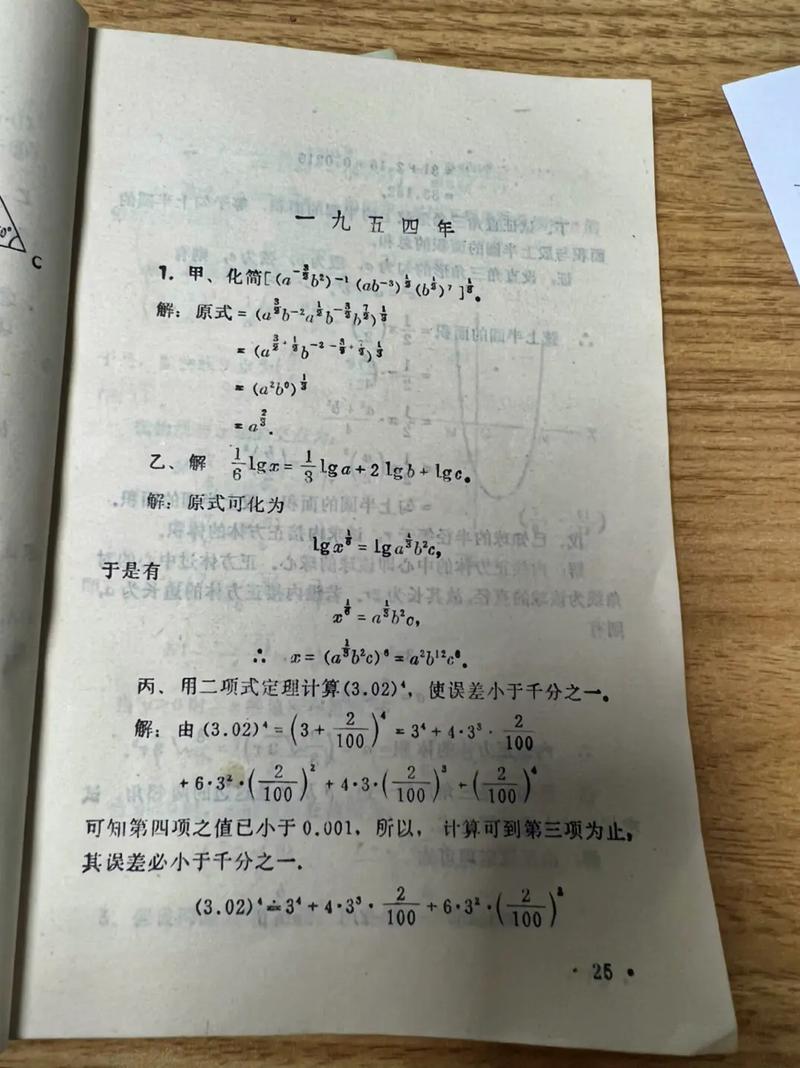 一九五四年
1. 甲、化简[(a^{-3/2}b²)⁻¹(ab⁻³)^{1/2}(b^{1/2})⁷]^{1/3}。
解：原式=(a^{3/2}b⁻²a^{1/2}b^{-3/2}b^{7/2})^{1/3}
=(a^{3/2+1/2}b^{-2-3/2+7/2})^{1/3}
=(a²b⁰)^{1/3}
=a^{2/3}.
乙、解 1/6 lgx = 1/3 lga+2lgb+lgc。
解：原式可化为
lgx^{1/6}=lga^{1/3}b²c,
于是有
x^{1/6}=a^{1/3}b²c,
∴ x=(a^{1/3}b²c)⁶=a²b¹²c⁶。
丙、用二项式定理计算(3.02)⁴，使误差小于千分之一。
解：由(3.02)⁴=(3+2/100)⁴=3⁴+4·3³·2/100
+6·3²·(2/100)²+4·3·(2/100)³+(2/100)⁴
可知第四项之值已小于0.001，所以，计算可到第三项为止，
其误差必小于千分之一.
(3.02)⁴≐3⁴+4·3³·2/100+6·3²·(2/100)²
·25·
C